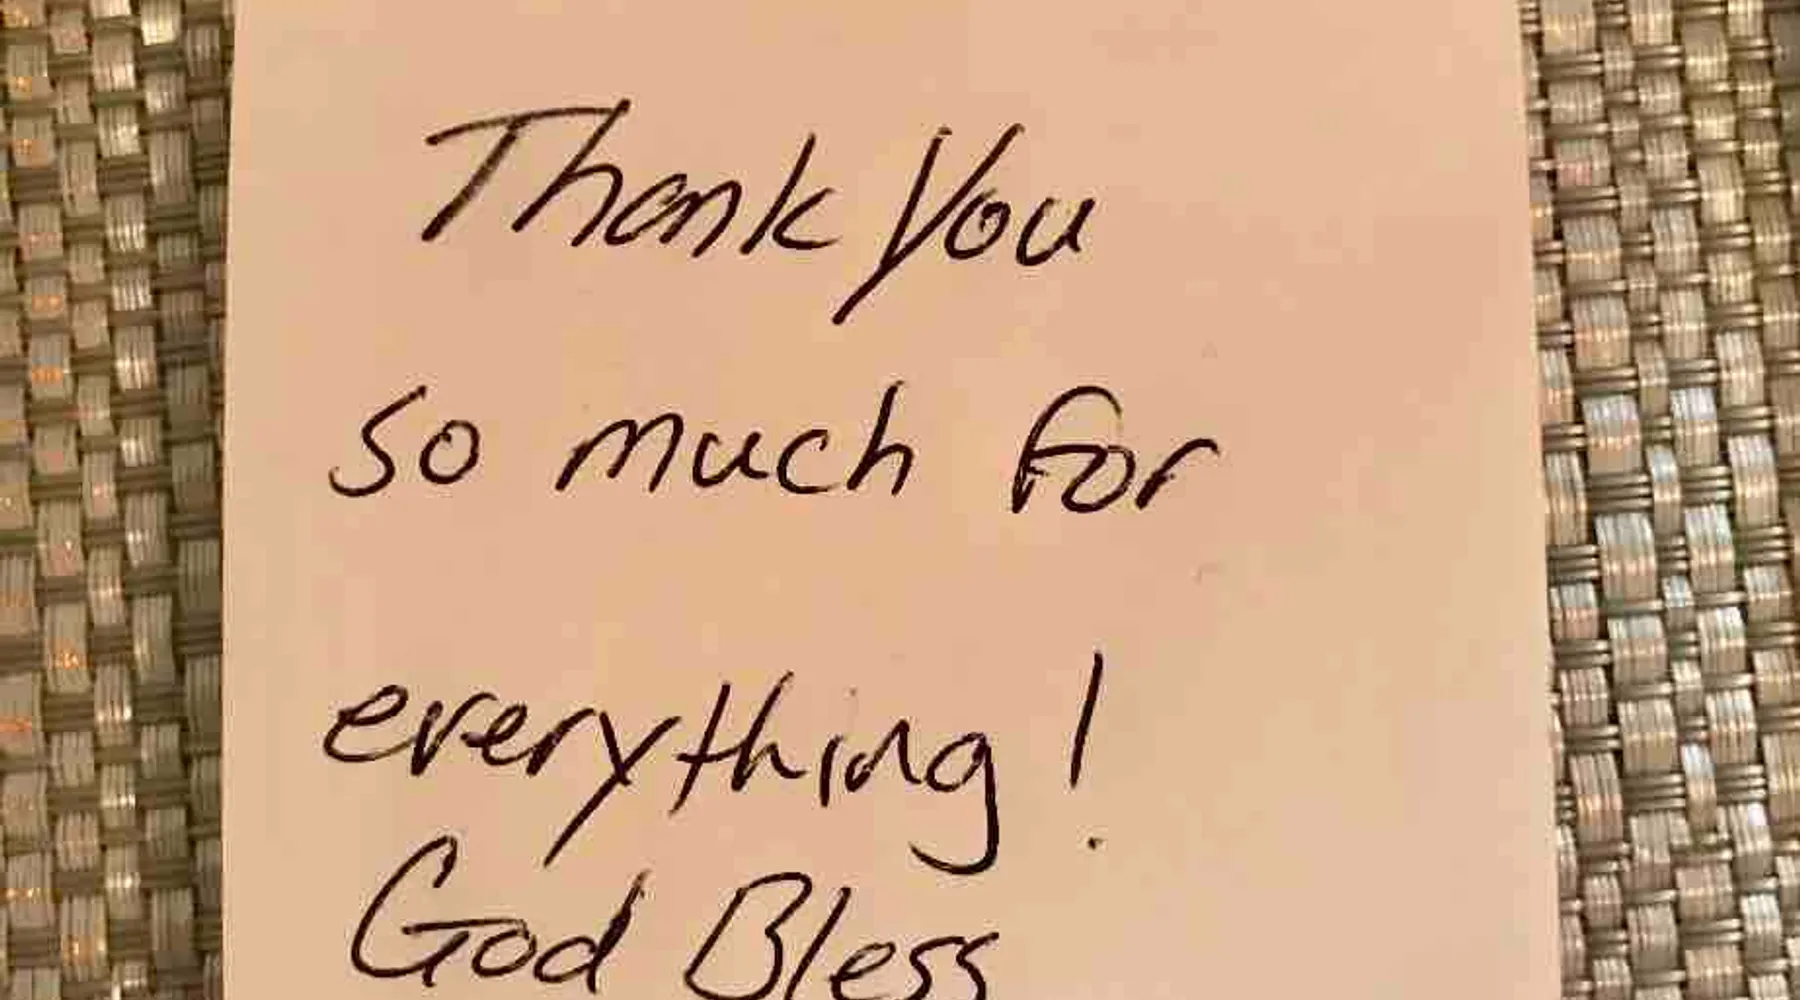 Thank You
so much for
everything!
God Bless